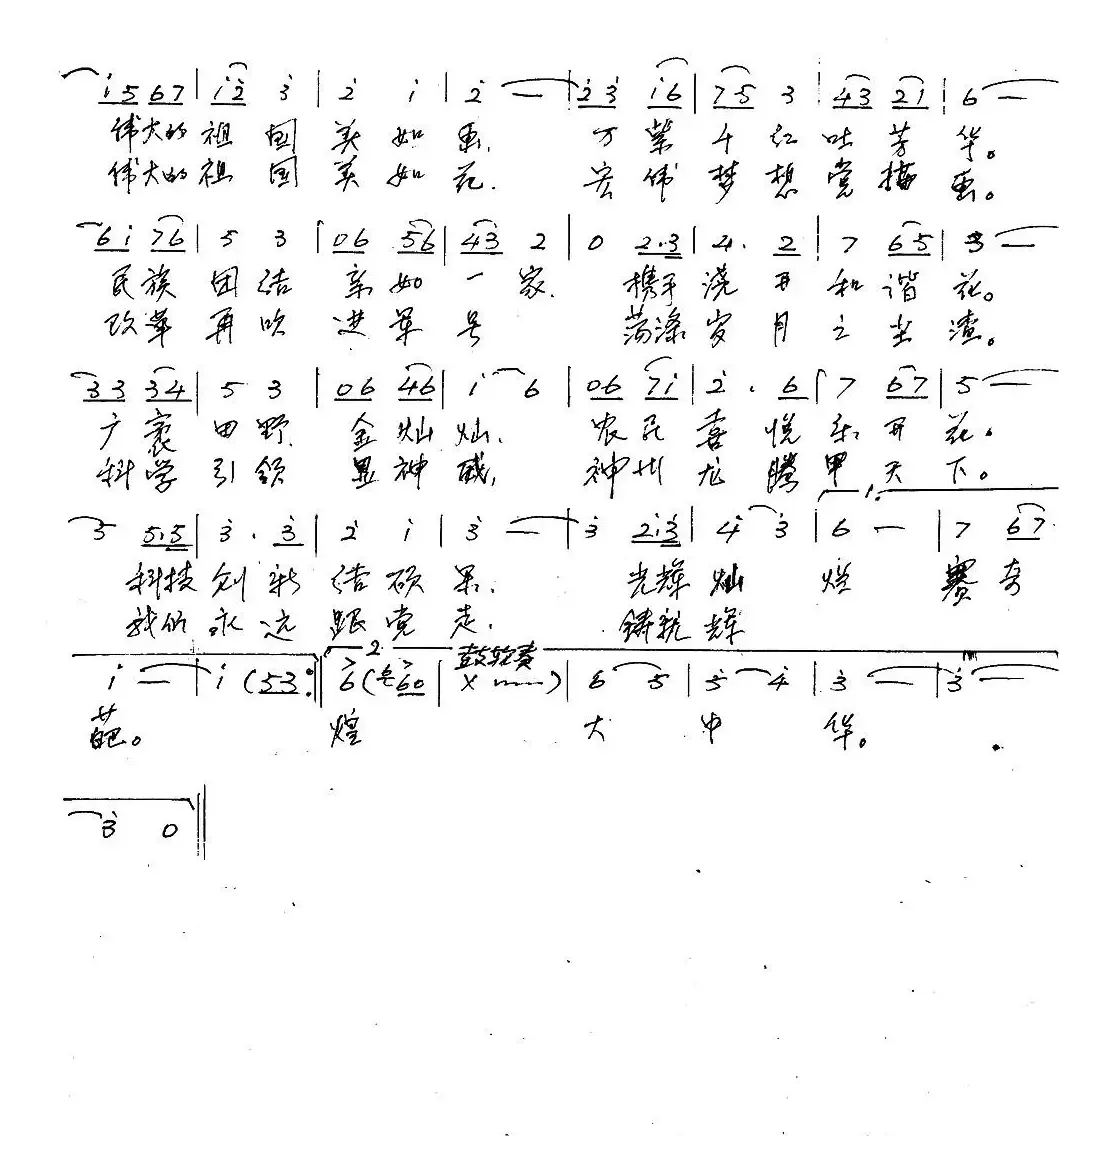 i 5 6 7 | i 2 3 | 2 i | 2 — | 2 3 i 6 | 7 5 3 | 4 3 2 1 | 6 —
伟大的祖国美如画, 万紫千红吐芳华。
伟大的祖国美如花. 宏伟梦想党描画。
6 i 7 6 | 5 3 | 0 6 5 6 | 4 3 2 | 0 2. 3 | 4. 2 | 7 6 5 | 3 —
民族团结亲如一家. 携手浇开和谐花。
改革再吹进军号 荡涤岁月之尘渣。
3 3 3 4 | 5 3 | 0 6 4 6 | i 6 | 0 6 7 i | 2. 6 | 7 6 7 | 5 —
广袤田野金灿灿. 农民喜悦乐开花。
科学引领显神威, 神州龙腾甲天下。
1.
5 5. 5 | 3. 3 | 2 i | 3 — | 3 2. 3 | 4 3 | 6 — | 7 6 7
科技创新结硕果. 光辉灿烂赛奇
我们永远跟党走. 铸就辉
2. 鼓轮奏
i — | i ( 5 3 :| 6 ( 6 0 | X ) | 6 5 | 5 4 | 3 — | 3 —
葩。 煌 大中华。
3 0 ‖